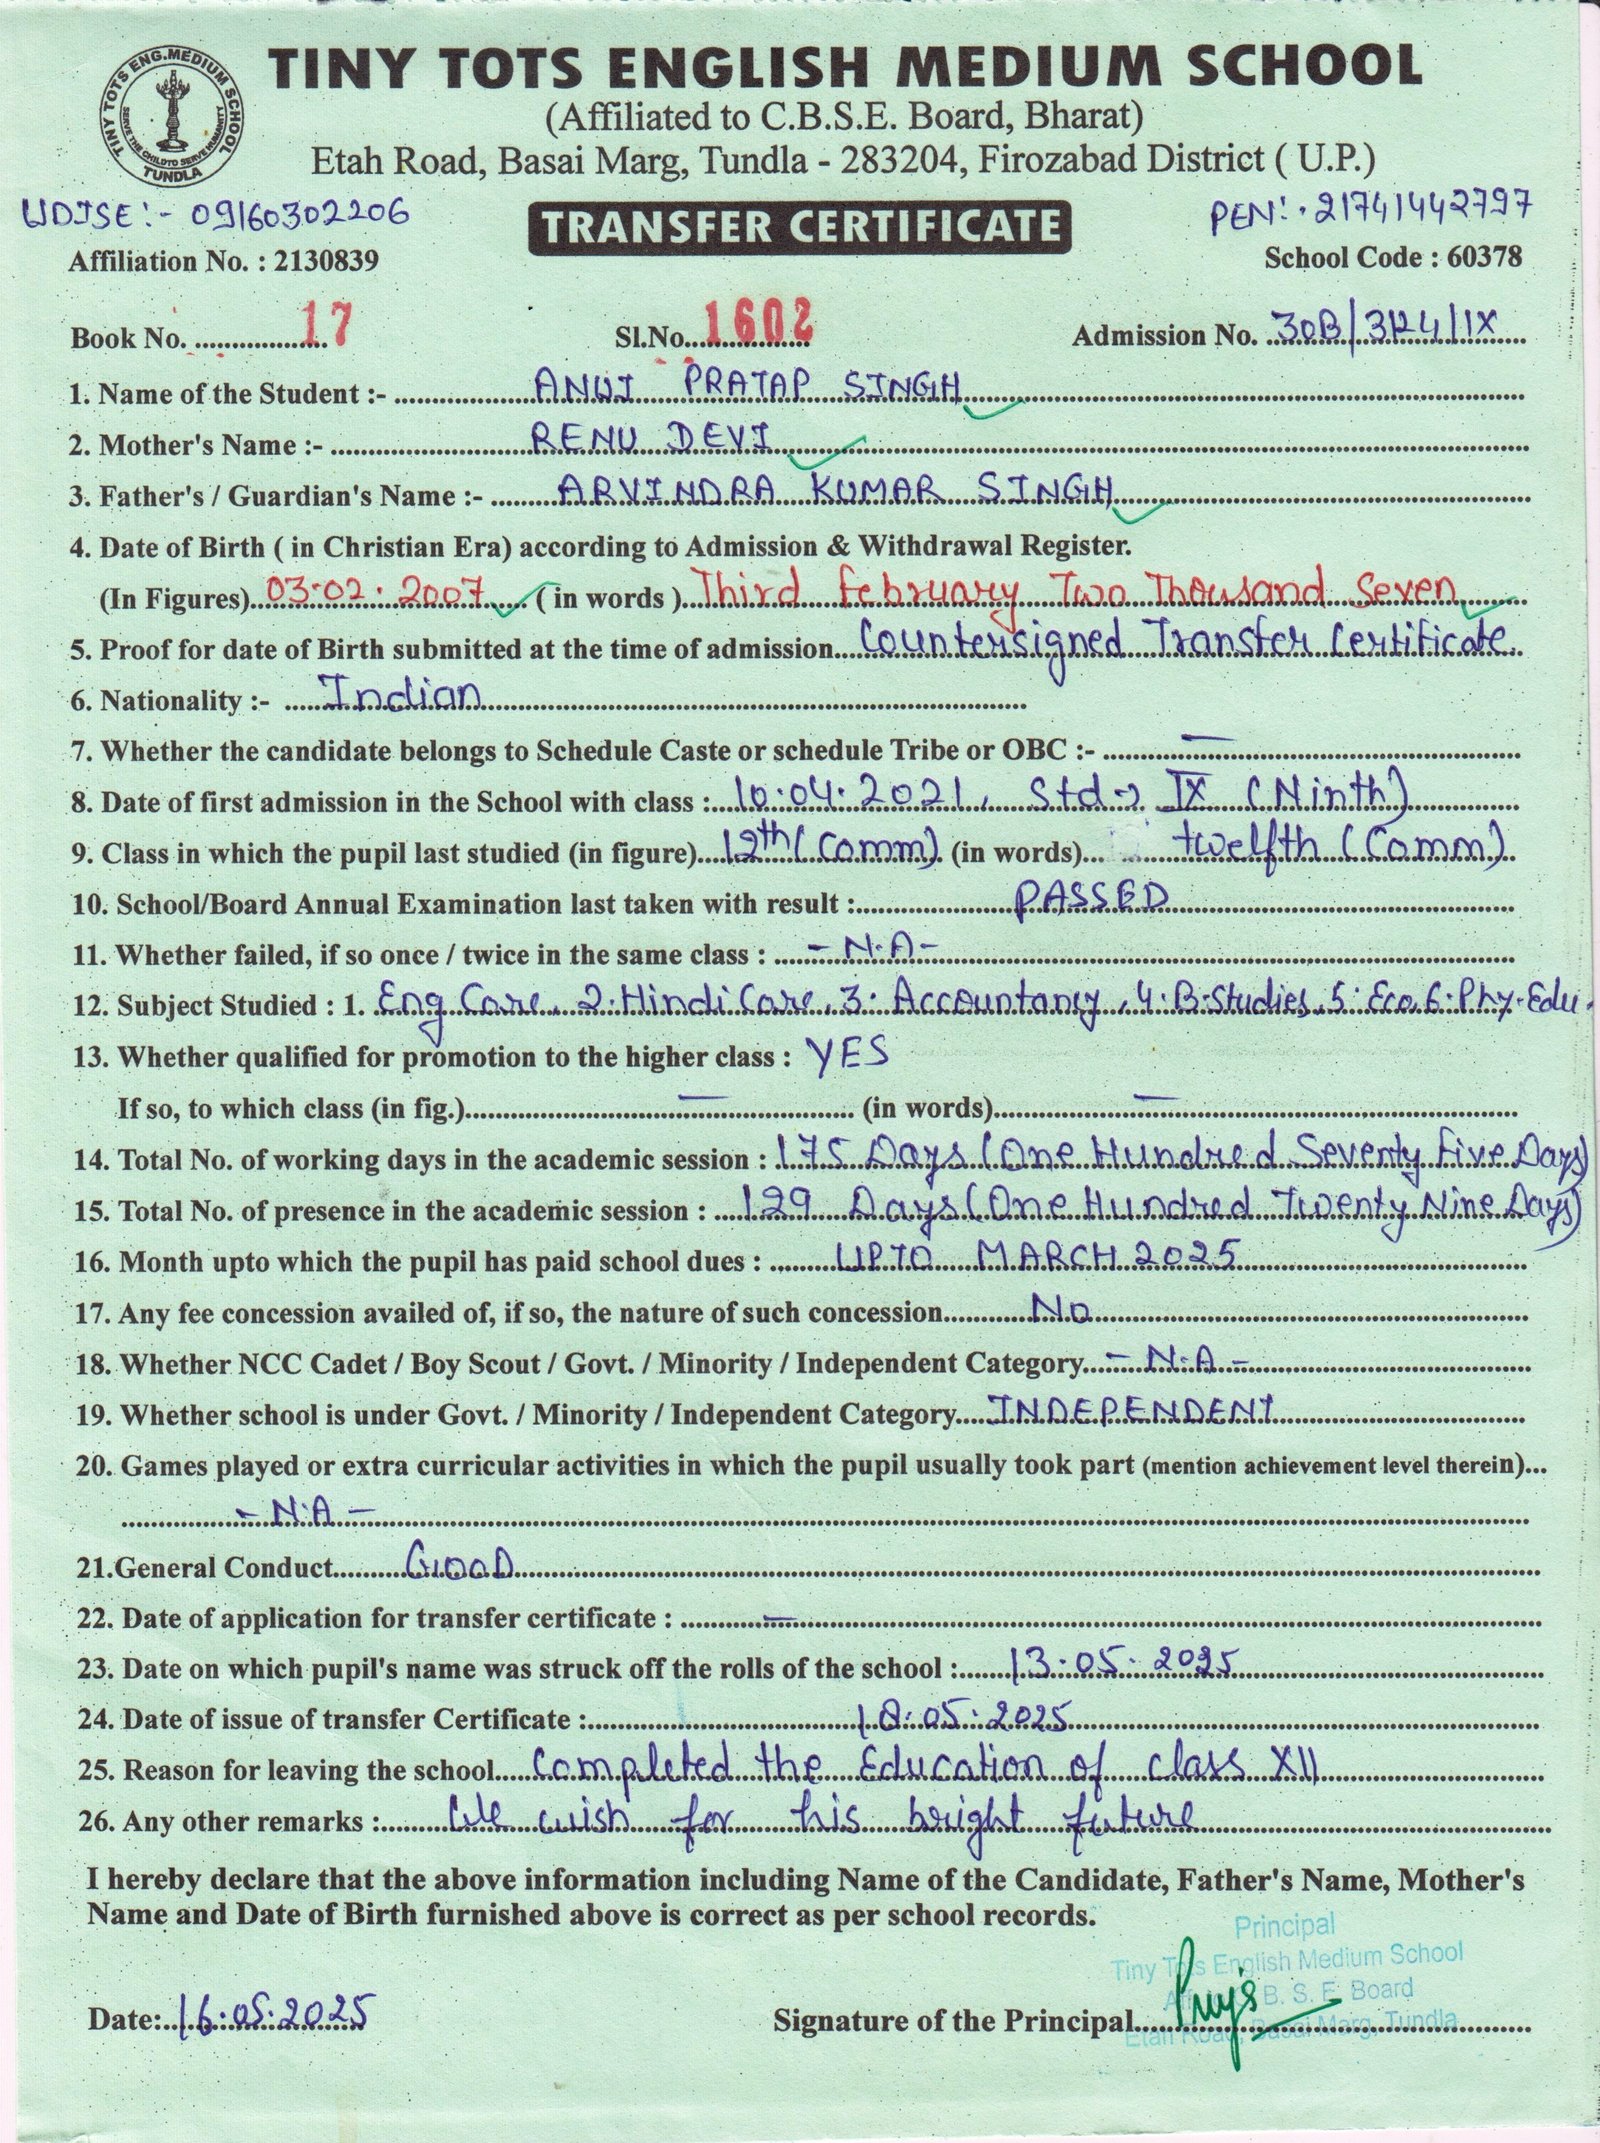 TINY TOTS ENG.MEDIUM SCHOOL
SERVE THE CHILD TO SERVE HUMANITY
TUNDLA
TINY TOTS ENGLISH MEDIUM SCHOOL
(Affiliated to C.B.S.E. Board, Bharat)
Etah Road, Basai Marg, Tundla - 283204, Firozabad District ( U.P.)
UDISE:- 09160302206
TRANSFER CERTIFICATE
PEN:. 21741442797
Affiliation No. : 2130839
School Code : 60378
Book No. 17 Sl.No. 1602 Admission No. 30B/3124/IX
1. Name of the Student :- ANUJ PRATAP SINGH
2. Mother's Name :- RENU DEVI
3. Father's / Guardian's Name :- ARVINDRA KUMAR SINGH
4. Date of Birth ( in Christian Era) according to Admission & Withdrawal Register.
(In Figures) 03.02.2007 ( in words ) Third February Two Thousand Seven
5. Proof for date of Birth submitted at the time of admission Countersigned Transfer Certificate
6. Nationality :- Indian
7. Whether the candidate belongs to Schedule Caste or schedule Tribe or OBC :- —
8. Date of first admission in the School with class : 10.04.2021, Std → IX (Ninth)
9. Class in which the pupil last studied (in figure) 12th (Comm) (in words) twelfth (Comm)
10. School/Board Annual Examination last taken with result : PASSED
11. Whether failed, if so once / twice in the same class : - N.A -
12. Subject Studied : 1. Eng Core, 2. Hindi Core, 3. Accountancy, 4. B.Studies, 5. Eco, 6. Phy. Edu.
13. Whether qualified for promotion to the higher class : YES
If so, to which class (in fig.) — (in words) —
14. Total No. of working days in the academic session : 175 Days (One Hundred Seventy Five Days)
15. Total No. of presence in the academic session : 129 Days (One Hundred Twenty Nine Days)
16. Month upto which the pupil has paid school dues : UPTO MARCH 2025
17. Any fee concession availed of, if so, the nature of such concession No
18. Whether NCC Cadet / Boy Scout / Govt. / Minority / Independent Category - N.A -
19. Whether school is under Govt. / Minority / Independent Category INDEPENDENT
20. Games played or extra curricular activities in which the pupil usually took part (mention achievement level therein)...
- N.A -
21.General Conduct GOOD
22. Date of application for transfer certificate : —
23. Date on which pupil's name was struck off the rolls of the school : 13.05.2025
24. Date of issue of transfer Certificate : 18.05.2025
25. Reason for leaving the school Completed the Education of class XII
26. Any other remarks : We wish for his bright future
I hereby declare that the above information including Name of the Candidate, Father's Name, Mother's
Name and Date of Birth furnished above is correct as per school records.
Principal
Tiny Tots English Medium School
B. S. E. Board
Etah Road, Basai Marg, Tundla
Date: 16.05.2025 Signature of the Principal